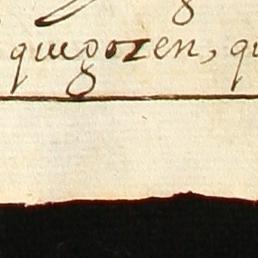 quegozen, qu